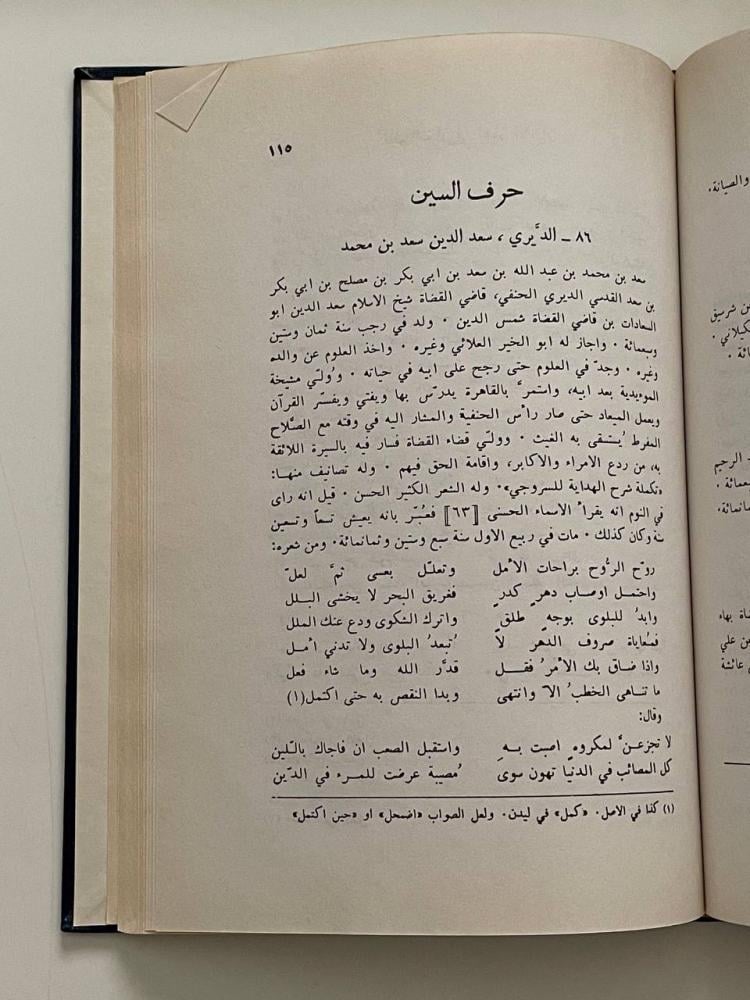 ١١٥
حرف السين
٨٦ – الدَّيري ، سعد الدين سعد بن محمد
سعد بن محمد بن عبد الله بن سعد بن ابي بكر بن مصلح بن ابي بكر
بن سعد القدسي الديري الحنفي، قاضي القضاة شيخ الاسلام سعد الدين ابو
السعادات بن قاضي القضاة شمس الدين . ولد في رجب سنة ثمان وستين
وسبعمائة . واجاز له ابو الخير العلائي وغيره . واخذ العلوم عن والده
وغيره . وجدّ في العلوم حتى رجح على ابيه في حياته . ووُلّي مشيخة
المؤيدية بعد ابيه، واستمرَّ بالقاهرة يدرّس بها ويفتي ويفسّر القرآن
ويعمل الميعاد حتى صار رأس الحنفية والمشار اليه في وقته مع الصَّلاح
المفرط يُستسقى به الغيث . وولّي قضاء القضاة فسار فيه بالسيرة اللائقة
به، من ردع الامراء والاكابر، واقامة الحق فيهم . وله تصانيف منهـا:
«تكملة شرح الهداية للسروجي». وله الشعر الكثير الحسن . قيل انه راى
في النوم انه يقرأ الأسماء الحسنى [٦٣] فعُبّر بانه يعيش تسعاً وتسعين
سنة وكان كذلك . مات في ربيع الاول سنة سبع وستين وثمانمائة. ومن شعره:
روّح الرُّوح براحات الأمل وتعلّل بعسى ثمَّ لعلّ
واحتمـل اوصاب دهرٍ كدرٍ فغريق البحر لا يخشى البلل
وابدُ للبلوى بوجهٍ طلقٍ واترك الشكوى ودع عنك الملل
فمعاياة صروف الدهر لا تُبعدُ البلوى ولا تدني أمـل
واذا ضـاق بك الأمرُ فقـل قدَّر الله وما شاء فعل
ما تناهى الخطبُ الا وانتهى وبدا النقص به حتى اكتمل(١)
وقال:
لا تجزعـنَّ لمكروهٍ اصبت بـهِ واستقبل الصعب ان فاجاك باللّين
كل المصائب في الدنيا تهون سوى مُصيبة عرضت للمرء في الدّين
(١) كذا في الاصل. «كمل» في ليدن. ولعل الصواب «اضمحل» او «حين اكتمل»
والصيانة.
من شرسيق
كيلاني .
ئة .
الرحيم
عمائة .
مانمائة.
اة بهاء
بن علي
عائشة